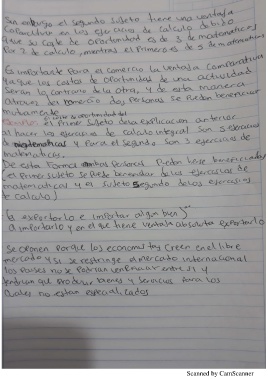 Sin embargo el segundo sujeto tiene una ventaja
comparativa en los ejercicios de calculo debido
que su costo de oportunidad es de 3 de matematicas
por 2 de calculo, mientras el primero es de 5 de matematicas
Es importante para el comercio la ventaja comparativa
ya que los costos de oportunidad de una actividad
seran lo contrario de la otra, y de esta manera
atraves del comercio dos personas se pueden beneficiar
mutuamente
el costo de oportunidad del
primer sujeto de la explicacion anterior
al hacer los ejercicios de calculo integral son 5 ejercicios
de matematicas y para el segundo son 3 ejercicios de
matematicas.
De esta forma ambos pueden beneficiados
(el primer sujeto se puede beneficiar de los ejercicios de
matematicas y el sujeto segundo de los ejercicios
de calculo)
exportarlo e importar algun bien
a importarlo y en el que tiene ventaja absoluta exportarlo
Se oponen porque los economistas creen en el libre
mercado y si se restringe el mercado internacional
los paises no se podrian entre si y
tendrian que producir bienes y servicios para los
cuales no estan especializados
Scanned by CamScanner